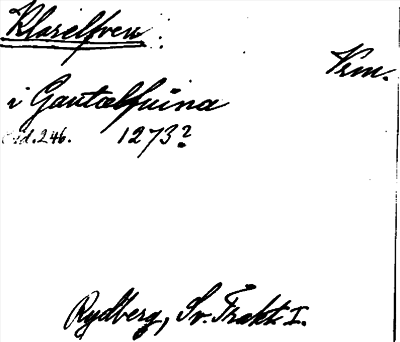 Klarelfven:
Vrm.
i Gautælfuina
sid. 246. 1273?
Rydberg, Sv. Trakt. I.